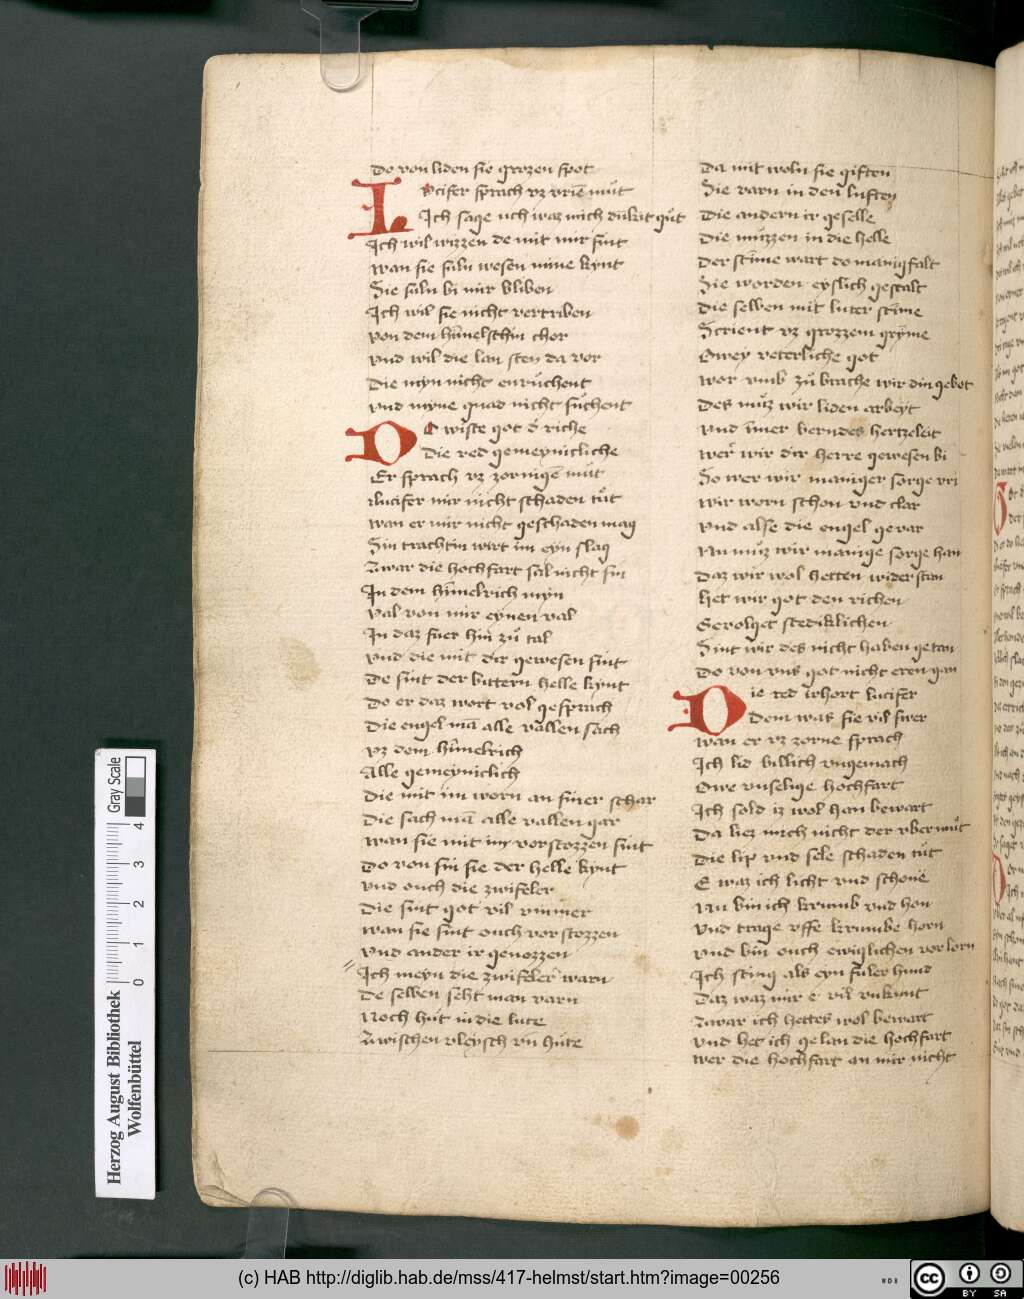 Do von liden sie grozen spot
Lucifer sprach vz vriē můt
Ich sage uch waz mich dūkit gůt
Ich wil wizzen de mit mir sint
Wan sie suln wesen mine kynt
Sie suln bi mir bliben
Ich wil sie nicht vertriben
Von dem hīmelschin chor
Vnd wil die lan sten da vor
Die myn nicht enrůchent
Vnd myne gnad nicht sůchent
Do wiste got d' riche
Die red gemeynicliche
Er sprach vz zornigē můt
Lucifer mir nicht schaden tůt
Wan er mir nicht geschaden mag
Sin trachtin wirt im eyn slag
Zwar die hochfart sal nicht sin
In dem hīmelrich myn
Val von mir eynen val
In daz fuer hin zů tal
Vnd die mit dir gewesen sint
De sint der bittern helle kynt
Do er daz wort vol gesprach
Die engel mā alle vallen sach
Vz dem hīmelrich
Alle gemeyniclich
Die mit im worn an siner schar
Die sach mā alle vallen gar
Wan sie mit im vorstozzen sint
Do von sin sie der helle kynt
Vnd ouch die zwifeler
Die sint got vil vnmer
Wan sie sint ouch vorstozzen
Vnd ander ir genozzen
Ich meyn die zwifeler warn
De selben seht man varn
Noch hut in die lute
Zwischen vleysch vn hute
Da mit woln sie giften
Sie varn in den luften
Die andern ir geselle
Die můzzen in die helle
Der stīme wart do manigfalt
Sie worden eyslich gestalt
Die selben mit luter stīme
Schrient vz grozzem grȳme
Owey veterliche got
Wor vmb zů brache wir din gebot
Des můz wir liden arbeyt
Vnd īmer berndes hertzeleit
Wer wir dir herre gewesen bi
So wer wir maniger sorge vri
Wir worn schon vnd clar
Vnd alse die engel gevar
Nu můz wir manige sorge han
Daz wir wol hetten widerstan
Het wir got den richen
Gevolget stediklichen
Sint wir des nicht haben getan
Do von vns got nicht eren gan
Die red irhort lucifer
Dem was sie vil swer
Wan er vz zorne sprach
Ich lid billich vngemach
Owe vnselige hochfart
Ich sold iz wol han bewart
Da liez mich nicht der vbermůt
Die lip vnd sele schaden tůt
E waz ich licht vnd schone
Nu bin ich krumb vnd hon
Vnd trage vffe krumbe horn
Vnd bin ouch ewiglichen vorlorn
Ich sting als eyn fuler hund
Daz waz mir e vil vnkunt
Zwar ich hettes wol bewart
Vnd het ich gelan die hochfart
Wer die hochfart an mir nicht
Gray Scale
0 1 2 3 4
Herzog August Bibliothek
Wolfenbüttel
(c) HAB http://diglib.hab.de/mss/417-helmst/start.htm?image=00256
WDB
cc
BY SA